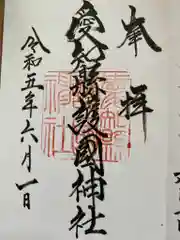 奉拝
愛知縣護國神社
令和五年六月一日